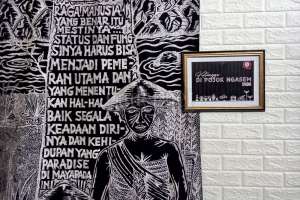 RAGA MANUSIA
YANG BENAR ITU
MESTINYA...
STATUS DAN FUNG
SINYA HARUS BISA
MENJADI PEME
RAN UTAMA DAN
YANG MENENTU
KAN HAL-HAL
BAIK SEGALA
KEADAAN DIRI-
NYA DAN KEHI-
DUPAN YANG
PARADISE
DI MAYAPADA
DI POJOK NGASEM